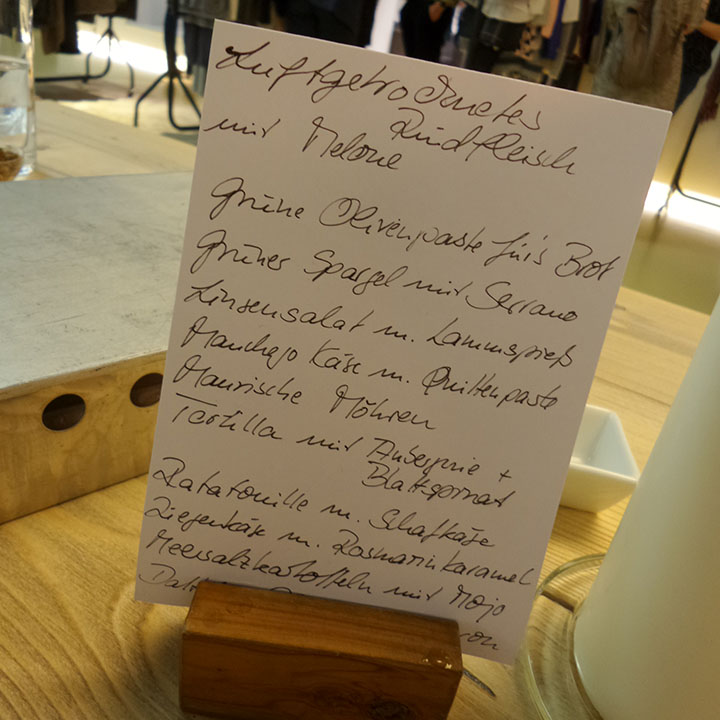 Luftgetrocknetes
Rindfleisch
mit Melone
Grüne Olivenpaste für's Brot
Grüner Spargel mit Serrano
Linsensalat m. Lammspieß
Manchego Käse m. Quittenpaste
Maurische Möhren
Tortilla mit Aubergine +
Blattspinat
Ratatouille m. Schafkäse
Ziegenkäse m. Rosmarinkaramel
Meersalzkartoffeln mit Mojo